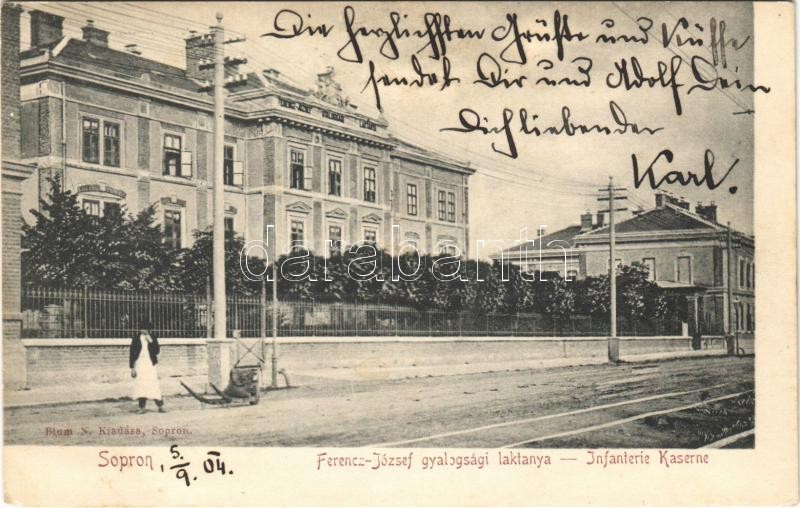 Die herzlichsten Grüße und Küsse
sendet Dir und Adolf Dein
Dich liebender
Karl.
darabanth
Blum N. Kiadása, Sopron.
Sopron, 5./9. 04.
Ferencz-József gyalogsági laktanya — Infanterie Kaserne